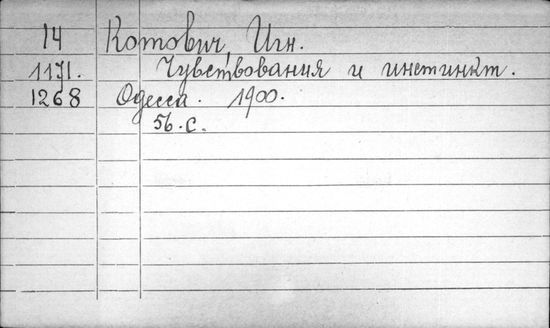 14 Котович, Игн.
1171. Чувствования и инстинкт.
1268 Одесса. 1900.
56. с.